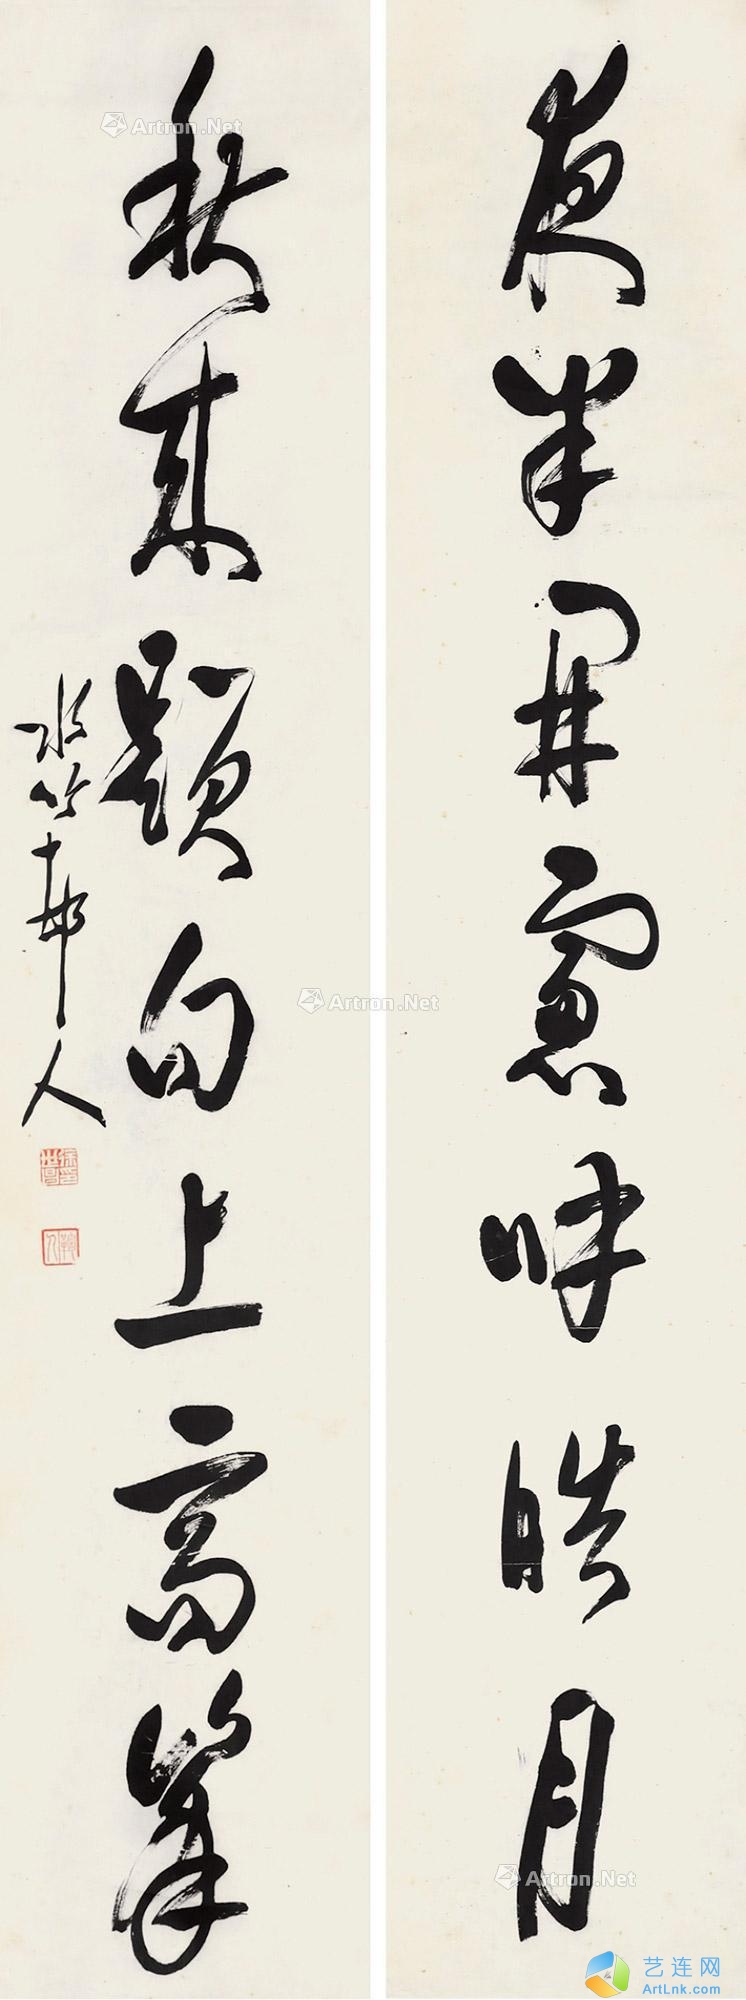 夜半開窗呼皓月
秋來題句上高峯
水竹邨人
徐世昌印
Artron.Net
Artron.Net
Artron.Net
艺连网
ArtLnk.com